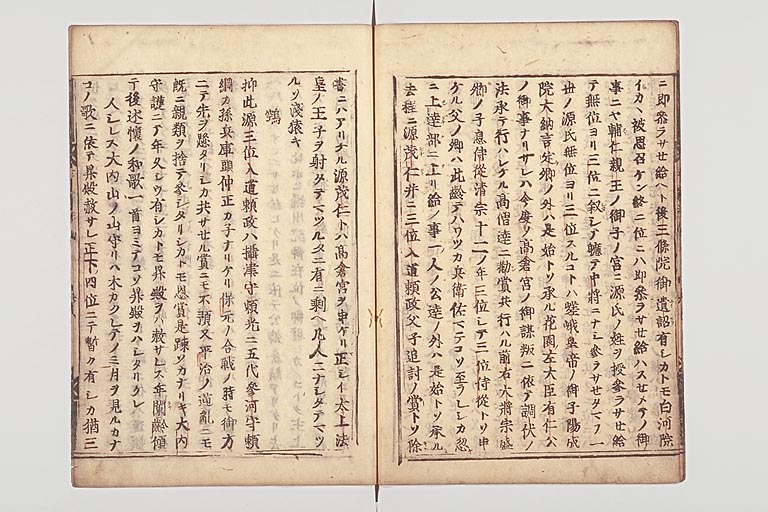 ニ即參ラサセ給ヘト後三條院御遺詔有シカトモ白河院
イカヽ被思召ケン終ニ位ニハ即參ラサセ給ハスセメテノ御
事ニヤ輔仁親王ノ御子ノ宮ニ源氏ノ姓ヲ授參ラサセ給
テ無位ヨリ三位ニ叙シテ軈テ中將ニナシ參ラサセタマフ一
世ノ源氏無位ヨリ三位スルコト嵯峨皇帝ノ御子陽成
院大納言定卿ノ外ハ是始トソ承ル花園左大臣有仁公
ノ御事ナリサレハ今度ノ高倉宮ノ御謀叛ニ依テ調伏ノ
法承テ行ハレケル高僧達ニ勸賞共行ハル前右大將宗盛
卿ノ子息侍從清宗十二ノ年三位シテ三位侍從トソ申
ケル父ノ卿ハ此齡テハワツカ兵衛佐マテコソ至ラレシカ忽
ニ上達部ニ上リ給ノ事一人ノ公達ノ外ハ是始トソ承ル
去程ニ源茂仁并ニ三位入道頼政父子追討ノ賞トソ除
書ニハアリケル源茂仁トハ高倉宮ヲ申ケリ正シイ太上法
皇ノ王子ヲ射タテマツルタニ有ニ剰ヘ凡人ニナシタテマツ
ルソ淺猿キ
鵼
抑此源三位入道頼政ハ攝津守頼光ニ五代參河守頼
綱カ孫兵庫頭仲正カ子ナリケリ保元ノ合戰ノ時モ御方
ニテ先ヲ懸タリシカ共サセル賞ニモ不預又平治ノ逆亂ニモ
既ニ親類ヲ捨テ參シタリシカトモ恩賞是踈ソカナリキ大内
守護ニテ年久シウ有シカトモ昇殿ヲハ赦サレス年闌齡傾
テ後述懷ノ和歌一首ヨミテコソ昇殿ヲハシタリケレ
人シレス大内山ノ山守リハ木カクレテノミ月ヲ見ルカナ
コノ歌ニ依テ昇殿赦サレ正下四位ニテ暫ク有シカ猶三